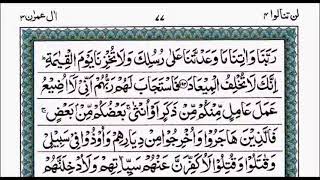 لن تنالوا ۴ ۷۷ اٰل عمرٰن ۳
رَبَّنَا وَاٰتِنَا مَا وَعَدْتَّنَا عَلٰى رُسُلِكَ وَلَا تُخْزِنَا يَوْمَ الْقِيٰمَةِ ؕ
اِنَّكَ لَا تُخْلِفُ الْمِيْعَادَ ۝ فَاسْتَجَابَ لَهُمْ رَبُّهُمْ اَنِّىْ لَاۤ اُضِيْعُ
عَمَلَ عَامِلٍ مِّنْكُمْ مِّنْ ذَكَرٍ اَوْ اُنْثٰى ۚ بَعْضُكُمْ مِّنْۢ بَعْضٍ ۚ
فَالَّذِيْنَ هَاجَرُوْا وَاُخْرِجُوْا مِنْ دِيَارِهِمْ وَاُوْذُوْا فِىْ سَبِيْلِىْ
وَقٰتَلُوْا وَقُتِلُوْا لَاُكَفِّرَنَّ عَنْهُمْ سَيِّاٰتِهِمْ وَلَاُدْخِلَنَّهُمْ